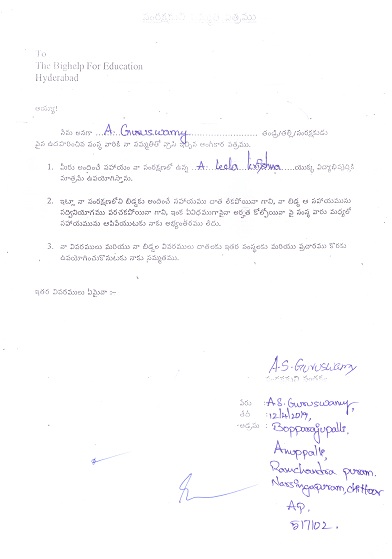 సంరక్షకుని అంగీకార పత్రము
To
The Bighelp For Education
Hyderabad
అయ్యా!
నేను అనగా A. Guruswamy తండ్రి/తల్లి/సంరక్షకుడు
పైన ఉదహరించిన సంస్థ వారికి నా సమ్మతితో వ్రాసి ఇచ్చిన అంగీకార పత్రము.
1. మీరు అందించే సహాయం నా సంరక్షణలో ఉన్న A. leela krishna యొక్క విద్యాభివృద్ధికి
మాత్రమే ఉపయోగిస్తాను.
2. ఇట్లు నా సంరక్షణలోని బిడ్డకు అందించే సహాయము దాత లేకపోయినా గాని, నా బిడ్డ ఆ సహాయమును
సద్వినియోగము పరచకపోయినా గాని, ఇంక ఏవిధముగానైనా అర్హత కోల్పోయినా పై సంస్థ వారు మధ్యలో
సహాయమును ఆపివేయుటకు నాకు అభ్యంతరము లేదు.
3. నా వివరములు మరియు నా బిడ్డల వివరములు దాతలకు ఇతర సంస్థలకు మరియు ప్రచారము కొరకు
ఉపయోగించుకొనుటకు నాకు సమ్మతము.
ఇతర వివరములు ఏమైనా :-
A.S. Guruswamy
పేరు : A.S. Guruswamy,
తేదీ : 12/4/2019,
అడ్రసు : Bopparajupalle,
Anuppalle,
Ramchandra puram.
Narsingapuram, chittoor
AP.
517102.